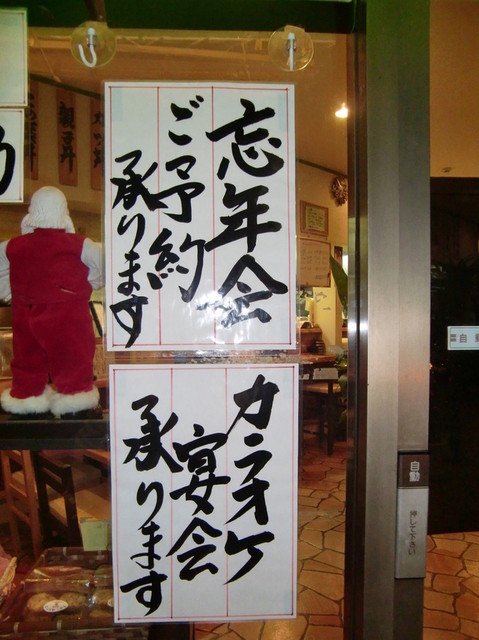 忘年会
ご予約
承ります
カラオケ
宴会
承ります
親子丼
自動
押して下さい
自動